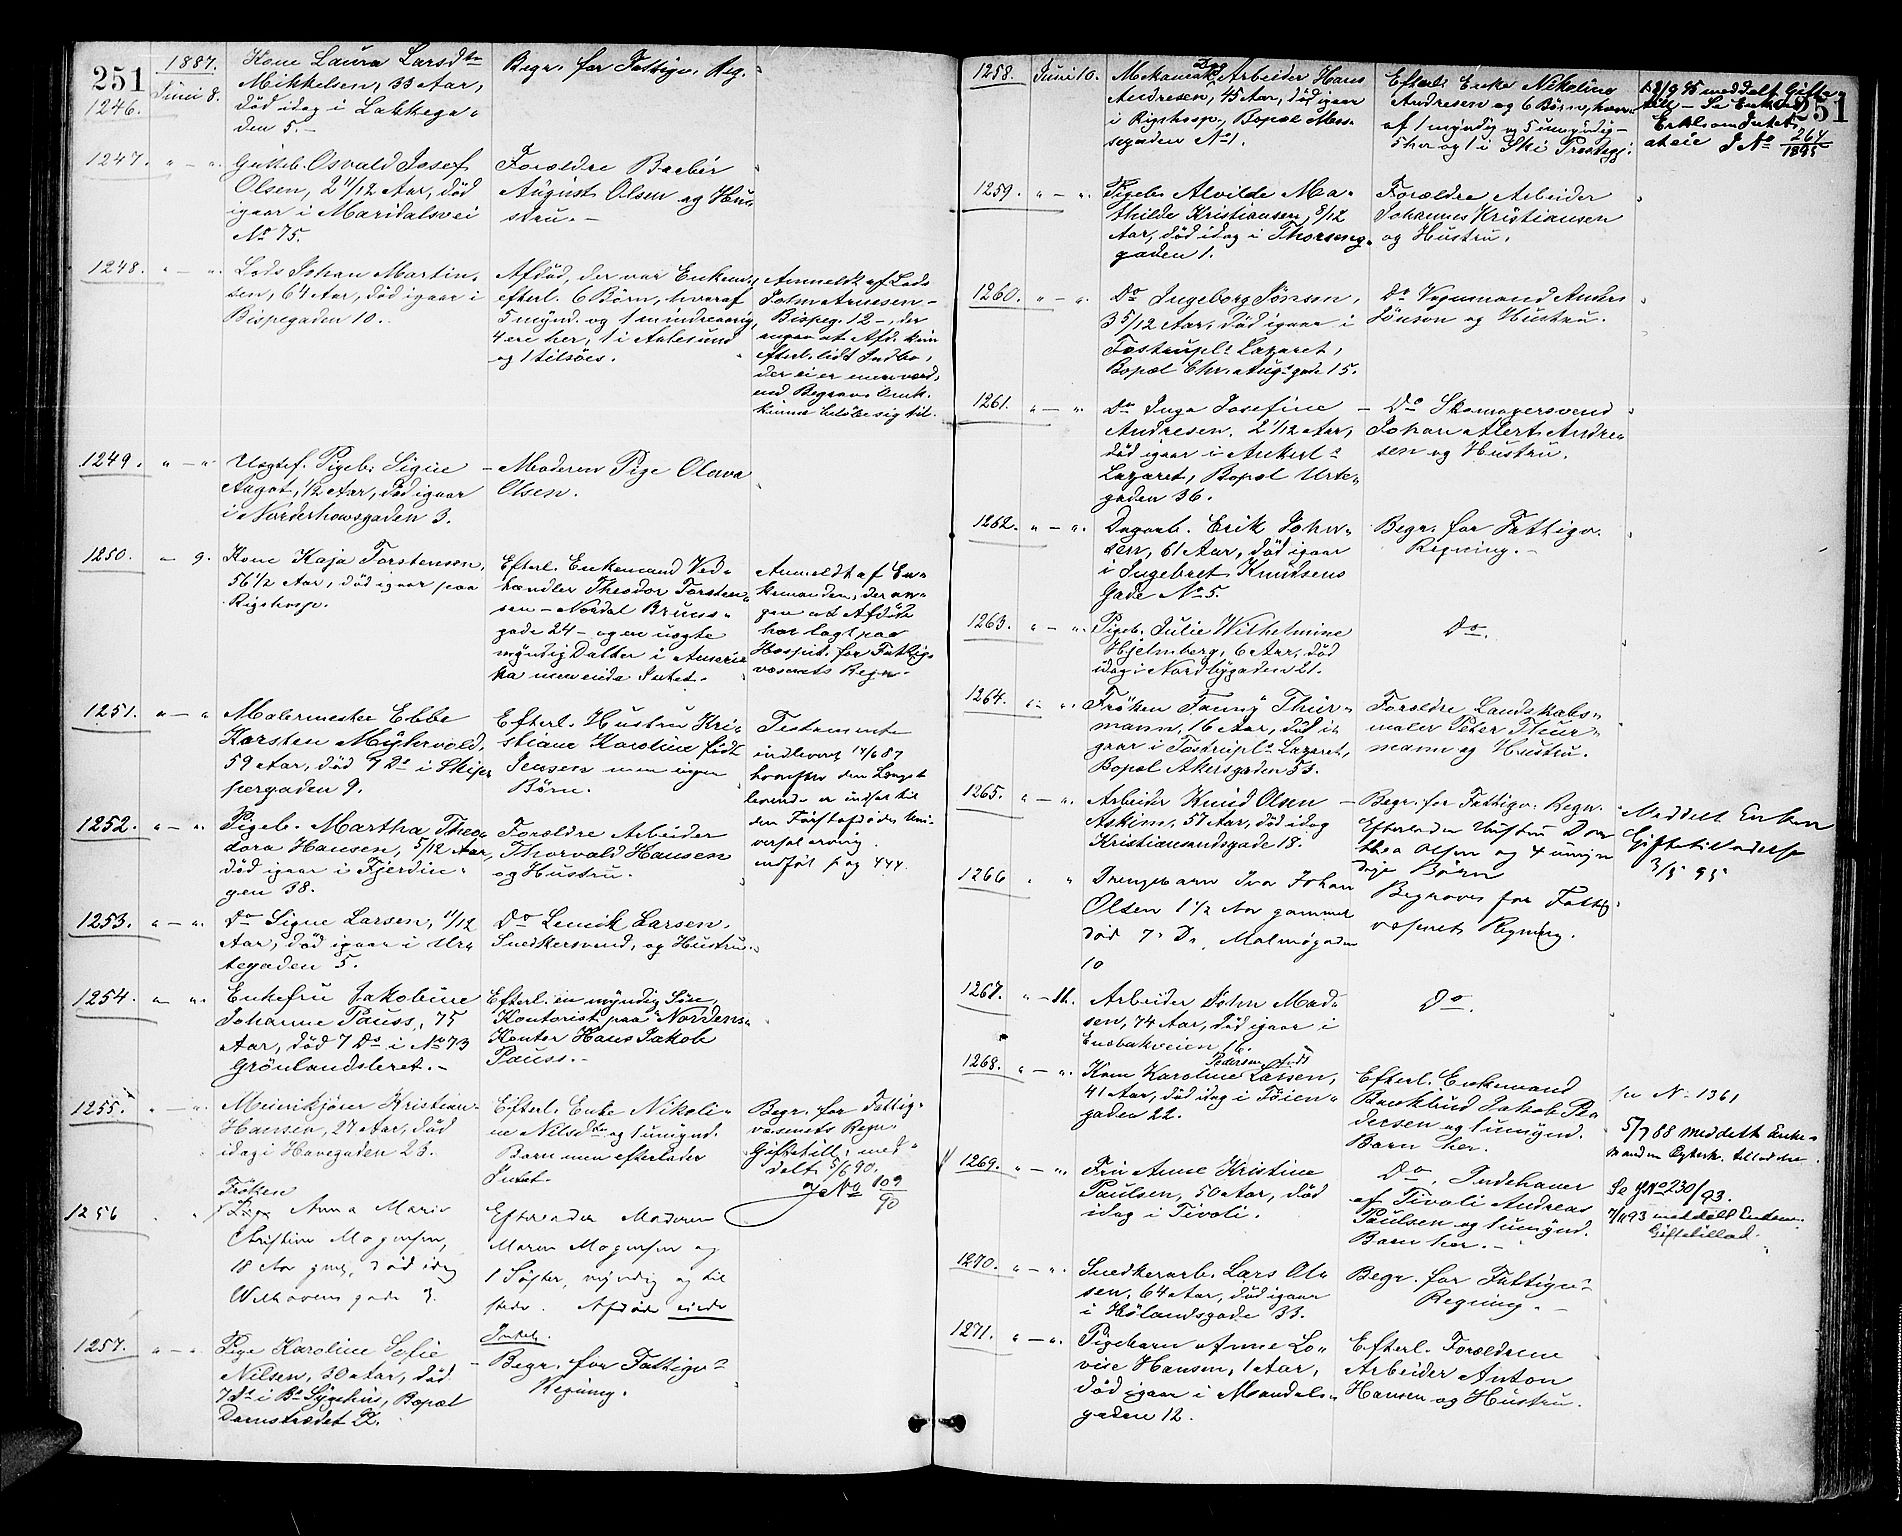 251
1887.
1246. Juni 8. Kone Laura Larsdtr
Mikkelsen, 33 Aar,
død idag i Lakkega-
den 5.-
Begr. for Fattigv. Reg.
1247. " - " Gutteb. Osvald Josef
Olsen, 2 11/12 Aar, død
igaar i Maridalsvei
No 75.
Forældre Barbér
August Olsen og Hu-
stru.-
1248. " - " Lods Johan Martin-
sen, 64 Aar, død igaar i
Bispegaden 10.
Afdød, der var Enkemd,
efterl. 6 Børn, hvoraf
5 mynd. og 1 mindreaarig,
4 ere her, 1 i Aalesund
og 1 tilsøes.
Anmeldt af Lods
Bispeg. 12 -, der
angav at Afd. kun
efterl. lidt Indbo,
der ei er mere værd,
end Begrav. Omk.
kunne beløbe sig til.
1249. " - " Uægtef. Pigeb. Signe
Aagot, 1/2 Aar, død igaar
i Nørderhovsgaden 3.
Moderen Pige Olava
Olsen.
1250. " - 9. Kone Kaja Torstensen,
56 1/2 Aar, død igaar paa
Rigshosp.
Efterl. Enkemand Ved-
handler Theodor Torsten-
sen - Nordal Bruns-
gade 24 - og en uægte
myndig Datter i Ameri-
ka men eide Intet.
Anmeldt af En-
kemanden, der an-
gav at Afdøde
har lagt paa
Hospit. for Fattig-
væsenets Regn.
1251. " - " Malermester Ebbe
Karsten Myhrvold,
59 Aar, død 7 Ds i Skip-
pergaden 9.
Efterl. Hustru Kri-
stiane Karoline født
Jensen men ingen
Børn.
Testamente
indleveret 14/6 87
hvorefter den Længst
levende er indsat til
den Førstafdødes Uni-
versal arving.
indført pag 444.
1252. " - " Pigeb. Martha Theo-
dora Hansen, 5/12 Aar,
død igaar i Fjerdin-
gen 38.
Forældre Arbeider
Thorvald Hansen
og Hustru.
1253. " - " Do Signe Larsen, 11/12
Aar, død igaar i Ur-
tegaden 5.
Do Larsen,
Snedkersvend, og Hustru.
1254. " " Enkefru Jakobine
Johanne Pauss, 75
Aar, død 7 Ds i No 73
Grønlandsleret.-
Efterl. en myndig Søn,
Kontorist paa "Nordens"
Kontor Hans Jakob
Pauss.-
1255. " - " Kristian
Hansen, 27 Aar, død
idag i Havegaden 23.
Efterl. Enke Nikoli-
ne Nilsdtr og 1 umynd.
Barn men efterlader
Intet.
Begr. for Fattig-
væsenets Regn.
Giftetill. med-
delt 5/6 90.
J No 109/90
1256 " Frøken
Anna Marie
Christine Mogensen,
18 Aar gml, død idag
Welhavens gade 3.
Efterlader Moderen
Maren Mogensen og
1 Søster, myndig og til
stede. Afdøde eiede
Intet.
1257. " - " Pige Karoline Sofie
Nilsen, 30 Aar, død
7 Ds i Bs Sygehus, Bopæl
Damstrædet 22.
Begr. for Fattigv.
Regning.
251
1258. Juni 10. Mekanisk Dag Arbeider Hans
Andresen, 45 Aar, død igaar
i Rigshosp., Bopæl Mos-
segaden No 1.
Efterl. Enke Nikoline
Andresen og 6 Børn, hvor-
af 1 myndig og 5 umyndig -
5 her og 1 i Ski Prestegj.
12/9 95 meddelt Gifte-
till - Se Enkens
Erkl. om Intet
at eie J No 264/1895
1259. " - " Pigeb. Alvilde Ma-
thilde Kristiansen, 8/12
Aar, død idag i Thorseng-
gaden 1.
Forældre Arbeider
Johannes Kristiansen
og Hustru.
1260. " - " Do Ingeborg Jønsen,
3 5/12 Aar, død igaar i
Tostrupls Lazaret,
Bopæl Chr. Augs gade 15.
Do Vognmand Anders
Jönson og Hustru.
1261. " - " Do Inga Josefine
Andresen, 2 1/12 Aar,
død igaar i Ankerls
Lazaret, Bopæl Urte-
gaden 36.
Do Skomagersvend
Johan Albert Andre-
sen og Hustru.
1262. " - " Dagarb. Erik John-
sen, 61 Aar, død igaar
i Ingebret Knudsens
Gade No 5.
Begr. for Fattigv.
Regning.-
1263. " - " Pigeb. Julie Wilhelmine
Hjelmberg, 6 Aar, død
idag i Nordbygaden 21.
Do.
1264. " - " Frøken Fanny Thur-
mann, 16 Aar, død i-
gaar i Tostrupls Lazaret,
Bopæl Akersgaden 53.
Forældre Landskabs-
maler Peter Thur-
mann og Hustru.
1265. " - " Arbeider Knud Olsen
Askim, 57 Aar, død idag
Kristiansundsgade 18.
Begr. for Fattigv. Regn.
Efterlader Hustru Doro
thea Olsen og 4 umyn
dige Børn
Meddelt Enken
Giftetilladelse
3/5 95
1266 " " Drengebarn Iva Johan
Olsen 1 1/2 Aar gammel
død 7 Ds, Malmøgaden
10
Begraves for Fattig-
væsenets Regning.
1267. " - 11. Arbeider John Mad-
sen, 74 Aar, død igaar i
Enebakveien 16.
Do.
1268. " - " Kone Karoline Pedersen født Larsen,
41 Aar, død idag i Tøien-
gaden 22.
Efterl. Enkemand
Bankbud Jakob Pe-
dersen og 1 umynd.
Barn her.
se No 1361
5/7 88 meddelt Enke-
manden Ægtesk. tilladelse
1269. " - " Fru Anne Kristine
Paulsen, 50 Aar, død
idag i Tivoli.
Do. Indehaver
af Tivoli Andreas
Paulsen og 1 umynd.
Barn her.-
Se JNo 230/93.
7/11 93 meddelt Enkem.
Giftetillad.
1270. " - " Snedkerarb. Lars Ol-
sen, 64 Aar, død igaar
i Hølandsgade 33.
Begr. for Fattigv.
Regning.-
1271. " - " Pigebarn Anne Lo-
vise Hansen, 1 Aar,
død igaar i Mandals-
gaden 12.
Efterl. Forældrene
Arbeider Anton
Hansen og Hustru.